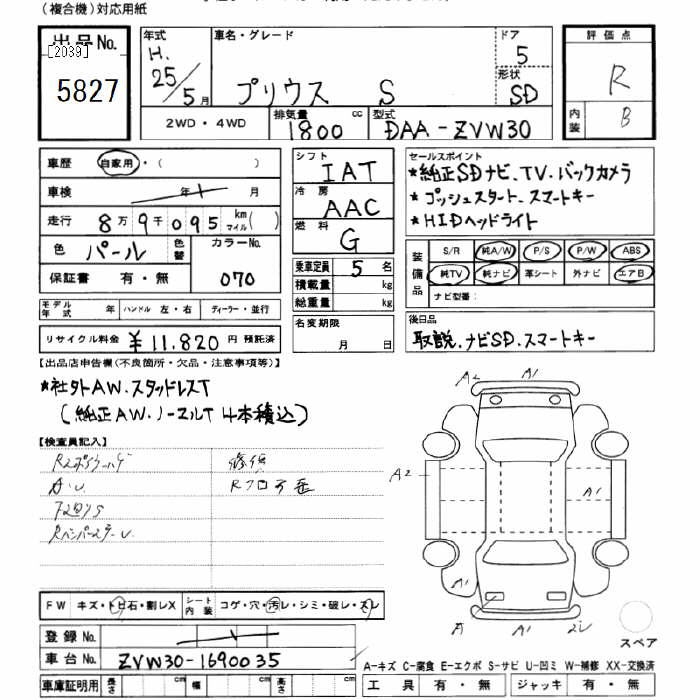 (複合機)対応用紙
出品No.
[2039]
5827
年式
H.
25/5月
車名・グレード
プリウス S
ドア
5
形状
SD
2WD・4WD
排気量
1800 cc
型式
DAA-ZVW30
評価点
R
内装
B
車歴 自家用・( )
車検 年 月
走行 8万9千095 km マイル( )
色 パール 色替
カラーNo.
070
保証書 有・無
シフト
IAT
冷房
AAC
燃料
G
乗車定員 5名
積載量 kg
総重量 kg
セールスポイント
*純正SDナビ.TV.バックカメラ
*プッシュスタート.スマートキー
*HIDヘッドライト
装備品
S/R 純A/W P/S P/W ABS
純TV 純ナビ 革シート 外ナビ エアB
ナビ型番:
モデル年式 年 ハンドル 左・右 ディーラー・並行
リサイクル料金 ¥11,820円 預託済
名変期限
月 日
後日品
取説.ナビSD.スマートキー
【出品店申告欄(不良箇所・欠品・注意事項等)】
*社外AW.スタッドレスT
(純正AW.ノーマルT 4本積込)
【検査員記入】
A・U
A2 A1
A2 A1
A1
A A1
FW キズ・トビ石・割レX シート内装 コゲ・穴・汚レ・シミ・破レ・スレ
登録No.
車台No. ZVW30-1690035
スペア
A-キズ C-腐食 E-エクボ S-サビ U-凹ミ W-補修 XX-交換済
車庫証明用 長さ cm 幅 cm 高さ cm
工具 有・無 ジャッキ 有・無